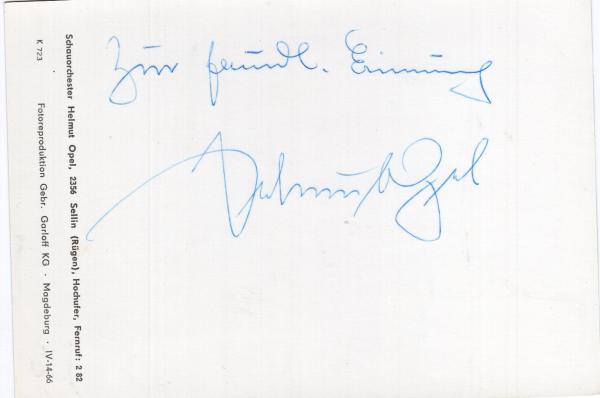 Zur freundl. Erinnerung
Helmut Opel
Schauorchester Helmut Opel, 2356 Sellin (Rügen), Hochufer, Fernruf: 2 82
K 723 Fotoreproduktion Gebr. Garloff KG · Magdeburg · IV-14-66